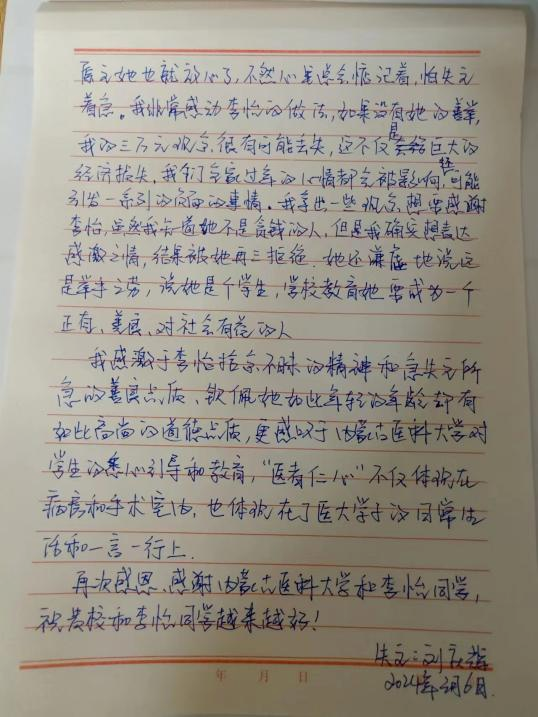 后她也就放心了，不然心里总会惦记着，怕失主
着急。我非常感动李怡的做法，如果没有她的善举，
我的三万元现金很有可能丢失，这不仅是巨大的
经济损失，我们全家过年的心情都会被影响，可能
引发一系列的负面的事情。我拿出一些现金想要感谢
李怡，虽然我知道她不是贪钱的人，但是我确实想表达
感激之情，结果被她再三拒绝。她还谦虚地说这
是举手之劳，说她是个学生，学校教育她要成为一个
正直、善良、对社会有益的人
我感激于李怡拾金不昧的精神和急失主所
急的善良品质、钦佩她如此年轻的年龄却有
如此高尚的道德品质，更感叹于内蒙古医科大学对
学生的悉心引导和教育，“医者仁心”不仅体现在
病房和手术室内，也体现在了医大学子的日常生
活和一言一行上．
再次感恩、感谢内蒙古医科大学和李怡同学，
祝贵校和李怡同学越来越好！
失主：刘
2024年2月6日．
年 月 日